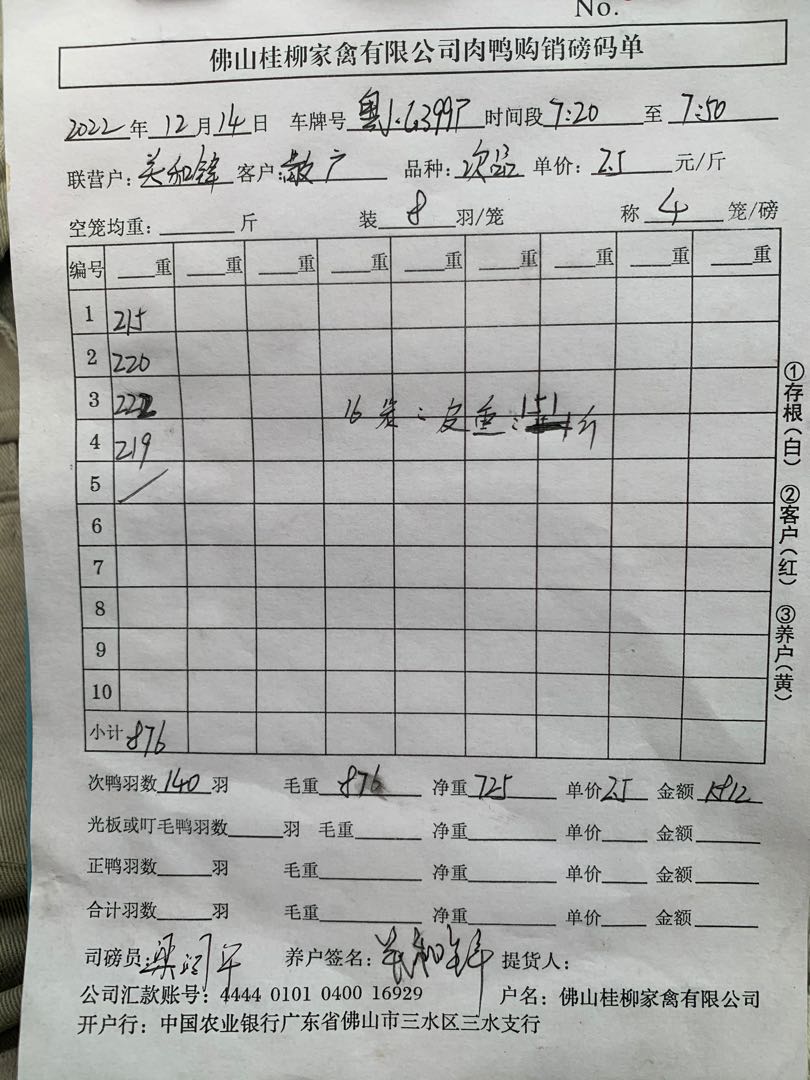 No.
佛山桂柳家禽有限公司肉鸭购销磅码单
2022年12月14日 车牌号 粤J·G399P 时间段7:20 至 7:50
联营户: 和锋 客户:散户 品种:次品 单价:2.5 元/斤
空笼均重:____斤 装 8 羽/笼 称 4 笼/磅
编号 ___重 ___重 ___重 ___重 ___重 ___重 ___重 ___重 ___重
1 215
2 220
3 222
16笼:皮重:151斤
4 219
5 /
6
7
8
9
10
小计 876
次鸭羽数140羽 毛重 876 净重 725 单价2.5 金额 1812
光板或叮毛鸭羽数____羽 毛重____ 净重____ 单价____ 金额____
正鸭羽数____羽 毛重____ 净重____ 单价____ 金额____
合计羽数____羽 毛重____ 净重____ 单价____ 金额____
司磅员: 养户签名: 提货人:
公司汇款账号: 4444 0101 0400 16929 户名: 佛山桂柳家禽有限公司
开户行: 中国农业银行广东省佛山市三水区三水支行
①存根(白) ②客户(红) ③养户(黄)